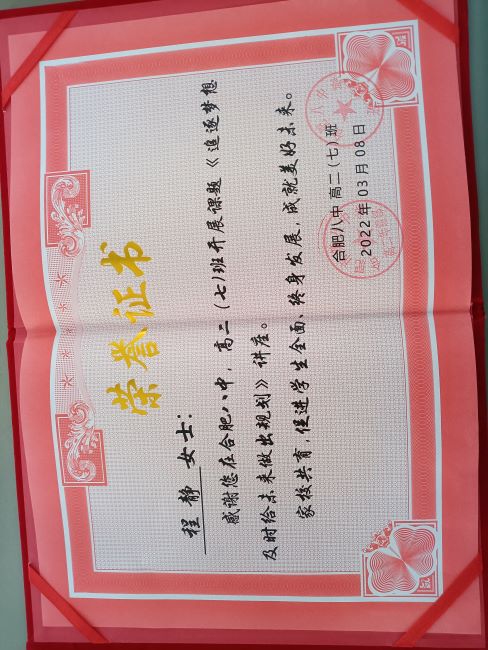 荣誉证书
程静 女士：
感谢您在合肥八中，高二（七）班开展课题《追逐梦想
及时给未来做出规划》讲座。
家校共育，促进学生全面、终身发展，成就美好未来。
合肥八中高二（七）班
2022年03月08日